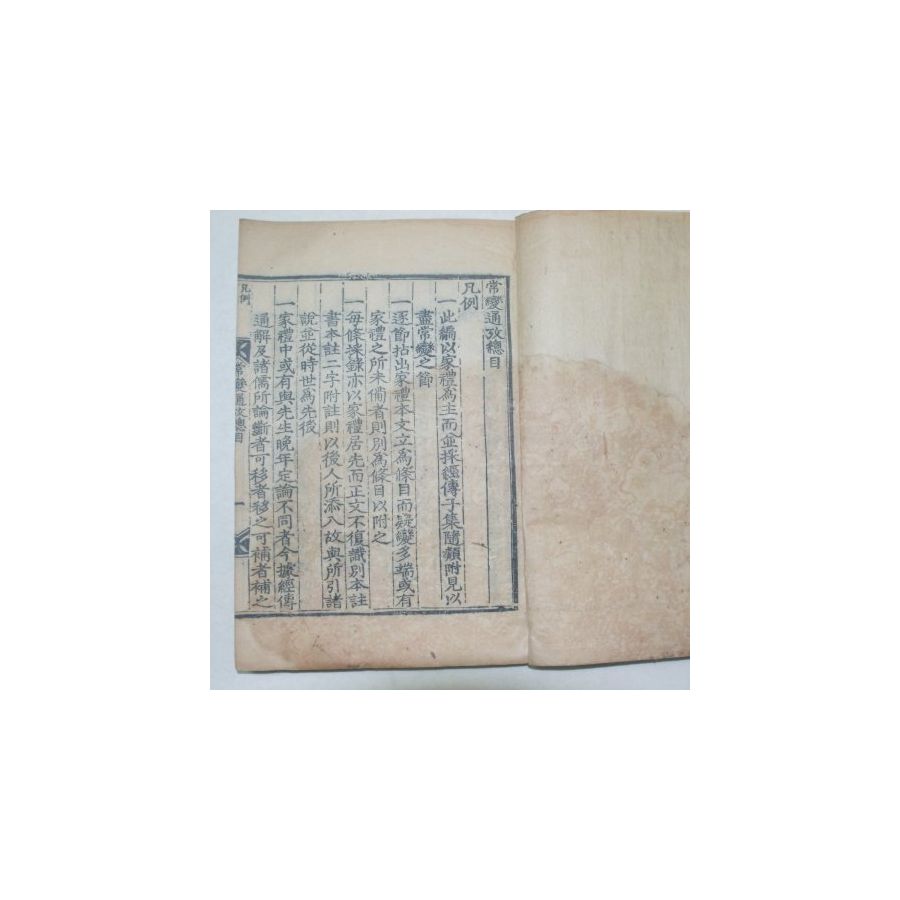 常變通攷總目
凡例
一此編以家禮爲主而並採經傳子集隨類附見以
盡常變之節
一逐節拈出家禮本文立爲條目而疑變多端或有
家禮之所未備者則別爲條目以附之
一每條採錄亦以家禮居先而正文不復識別本註
書本註二字附註則以後人所添入故與所引諸
說並從時世爲先後
一家禮中或有與先生晚年定論不同者今據經傳
通解及諸儒所論斷者可移者移之可補者補之
凡例
常變通攷總目
一